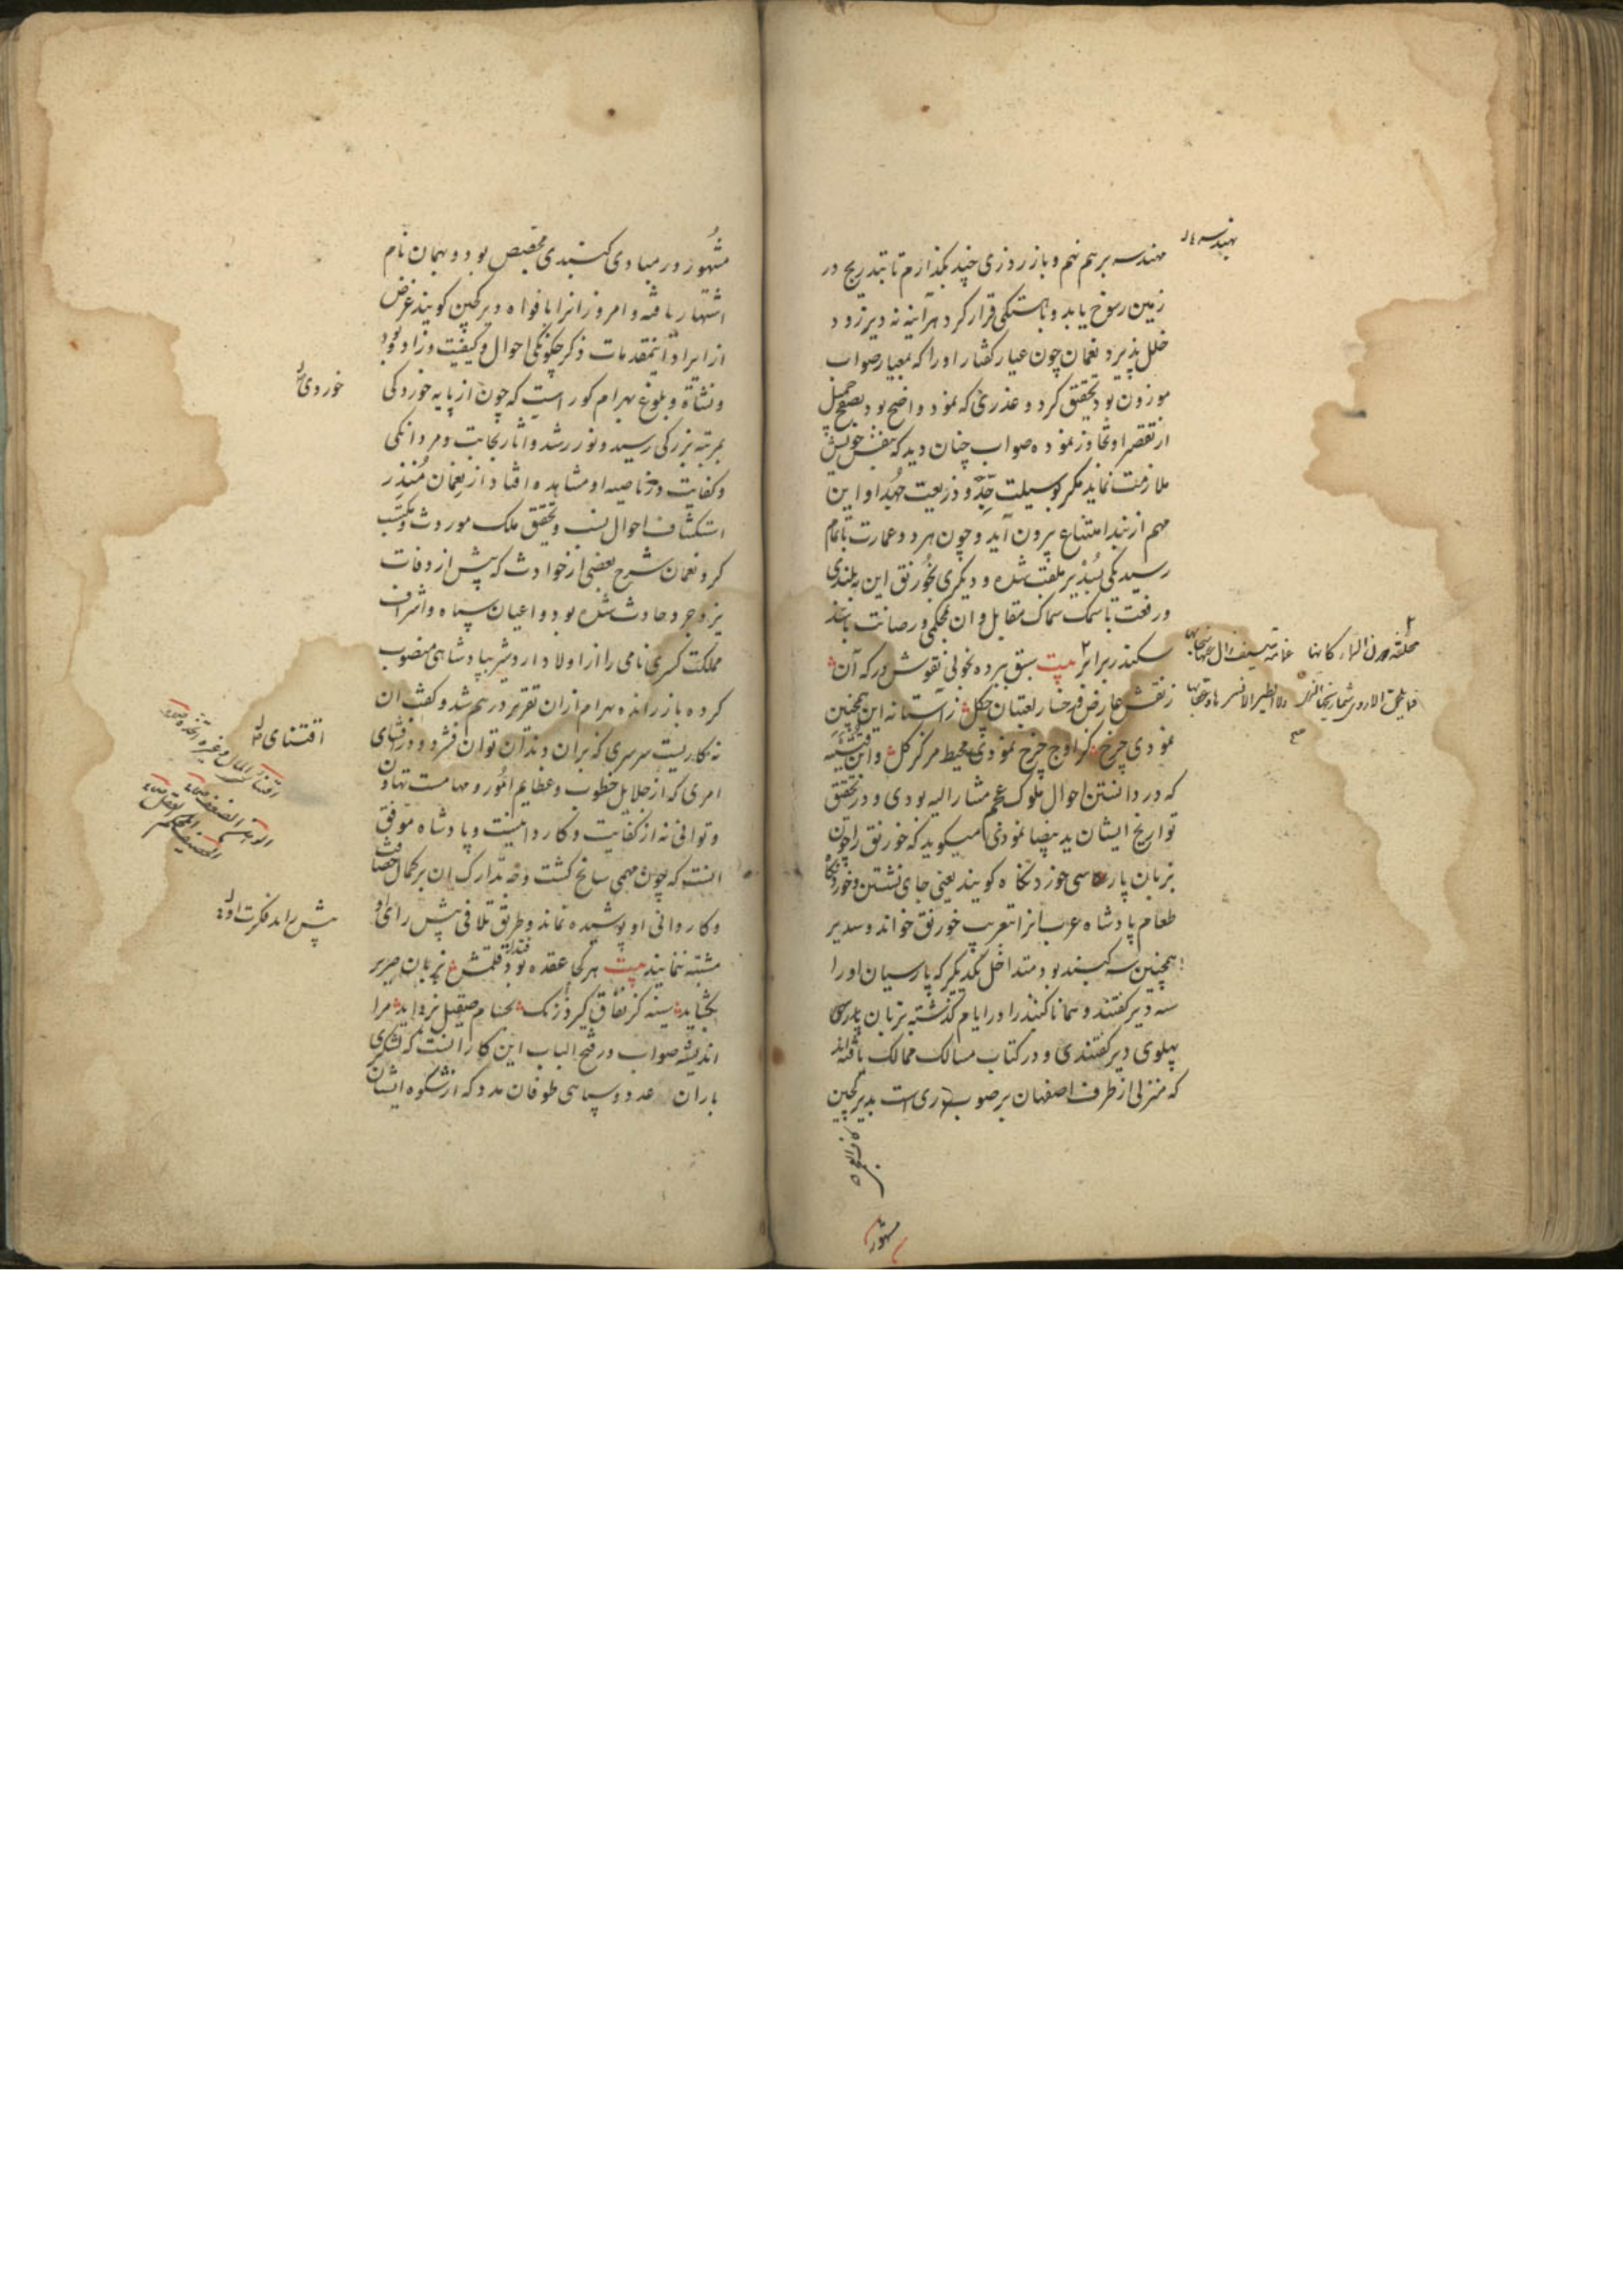 مهندسه برهم نهم و باز روزی چند بگذارم تا بتدریج در
زمین رسوخ یابد و باهستکی قرار کرد هرآینه نه دیر زود
خلل پذیرد نعمان چون عیار کفتار اورا که بمعیار صواب
موزون بود تحقیق کرد و عذری که نمود واضح بود بصفح جمیل
از تقصیر او تجاوز نموده صواب چنان دید که بنفس خویش
ملازمت نماید مکر بوسیلت جد و ذریعت جهد او این
مهم از بند امتناع بیرون آید و چون هر دو عمارت باتمام
رسید یکی بسدیر ملقب شد و دیکری بخورنق این ببلندی
و رفعت تا سمک سماک مقابل و ان بمحکمی و رصانت با سد
سکندر برابر بیت سبق برده بخوبی نقوش درکه آن
ز نقش عارض و رخسار لعبتان چکل ز آستانه این همچنین
نمودی چرخ کز اوج چرخ نمودی محیط مرکز کل و ابن قتیبه
که در دانستن احوال ملوک عجم مشار الیه بودی و در تحقیق
تواریخ ایشان ید بیضا نمودی میکوید که خورنق را چون
بزبان پارسی خوردنکاه کویند یعنی جای نشستن و خوردنکاه
طعام پادشاه عرب آنرا تعریب خورنق خواند و سدیر
همچنین سه کنبد بود متداخل یکدیکر که پارسیان اورا
سه دیر کفتند و همانا کنبد را در ایام کذشته بزبان پارسی
پهلوی دیر کفتندی و در کتاب مسالک ممالک یافته اند
که منزلی از طرف اصفهان بر صوب ری است بدیر کجین
مشهور
مشهور در مبادی کنبدی مجصص بود و بهمان نام
اشتهار یافته و امروز انرا بافواه دیر کجین کویند غرض
از ایراد اینمقدمات ذکر چکونکی احوال و کیفیت و زاد و بود
و نشأة و بلوغ بهرام کور است که چون از پایه خوردکی
بمرتبه بزرکی رسید و نور رشد و آثار نجابت و مردانکی
و کفایت در ناصیه او مشاهده افتاد از نعمان منذر
استکشاف احوال نسب و تحقیق ملک موروث و مکتسب
کرد نعمان شرح بعضی از حوادث که پیش از وفات
یزدجرد حادث شده بود و اعیان سپاه و اشراف
مملکت کسری نامی را از اولاد اردشیر بپادشاهی منصوب
کرده باز راند بهرام ازان تقریر درهم شد و کفت ان
نه کاریست سرسری که بران دندان توان فشرد و در قنای
امری که از جلایل خطوب و عظایم امور و مهامست تهاون
و توانی نه از کفایت و کاردانیست و پادشاه موفق
انست که چون مهمی سانح کشت وجه تدارک ان بر کمال حصافت
و کاردانی او پوشیده نماند و طریق تلافی پیش رای او
مشتبه ننماید بیت هر کجا عقده بود قلمش بزبان صریر
بکشاید سینه کز نفاق کیرد زنک بحسام صیقل بزداید مرا
اندیشه صواب در فتح الباب این کار انست که لشکری
باران عدد و سپاهی طوفان مدد که از شکوه ایشان
خوردی
اقتنای
پیش راید فکرت او